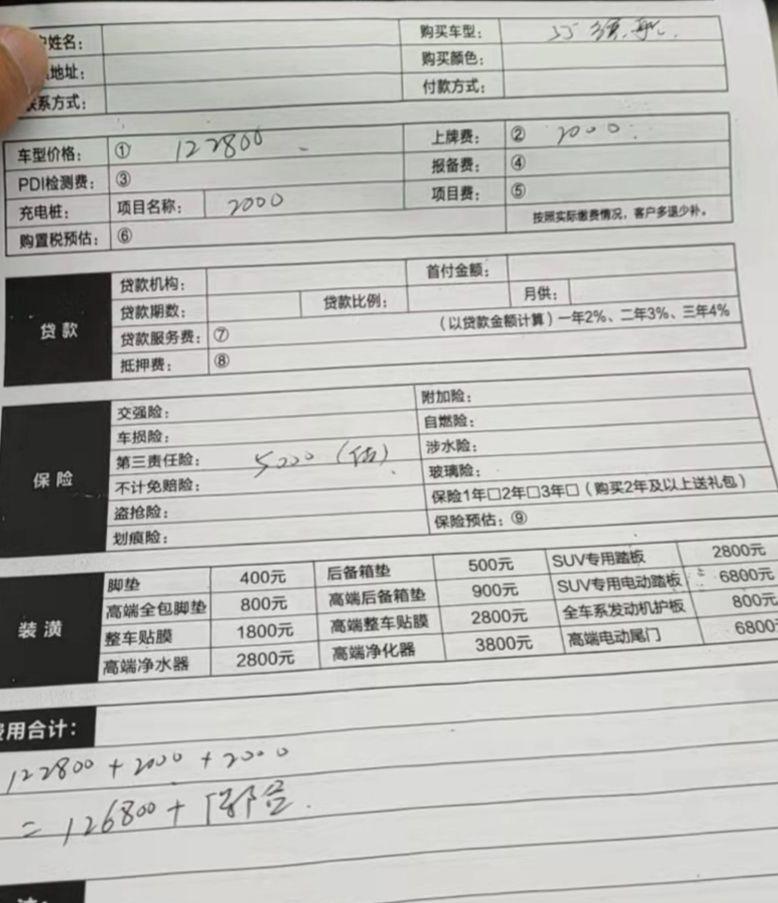 户姓名： 购买车型： 55 领航
地址： 购买颜色：
联系方式： 付款方式：
车型价格： ① 122800 上牌费： ② 2000
PDI检测费： ③ 报备费： ④
充电桩： 项目名称： 2000 项目费： ⑤
购置税预估： ⑥ 按照实际缴费情况，客户多退少补。
贷款
贷款机构： 首付金额：
贷款期数： 贷款比例： 月供：
贷款服务费： ⑦ （以贷款金额计算）一年2%、二年3%、三年4%
抵押费： ⑧
保险
交强险： 附加险：
车损险： 自燃险：
第三责任险： 5000（估） 涉水险：
不计免赔险： 玻璃险：
盗抢险： 保险1年□2年□3年□（购买2年及以上送礼包）
划痕险： 保险预估：⑨
装潢
脚垫 400元 后备箱垫 500元 SUV专用踏板 2800元
高端全包脚垫 800元 高端后备箱垫 900元 SUV专用电动踏板 6800元
整车贴膜 1800元 高端整车贴膜 2800元 全车系发动机护板 800元
高端净水器 2800元 高端净化器 3800元 高端电动尾门 6800元
费用合计：
122800 + 2000 + 2000
= 126800 +